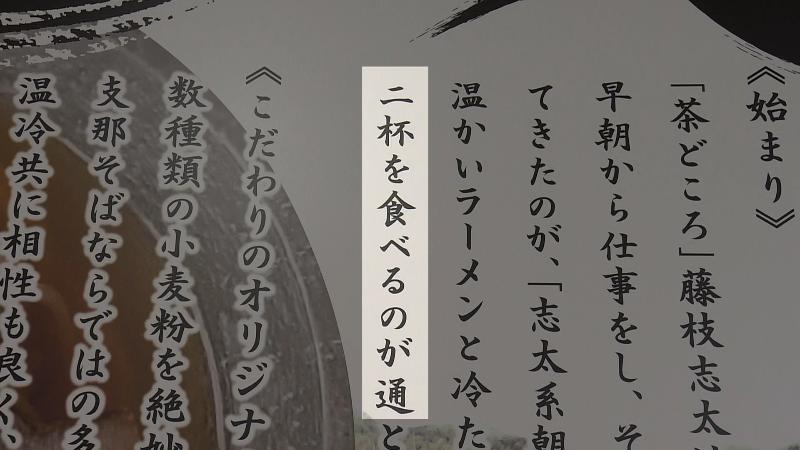 《始まり》
「茶どころ」藤枝志太
早朝から仕事をし、そ
てきたのが、「志太系朝
温かいラーメンと冷た
二杯を食べるのが通と
《こだわりのオリジナ
数種類の小麦粉を絶妙
支那そばならではの多
温冷共に相性も良く、